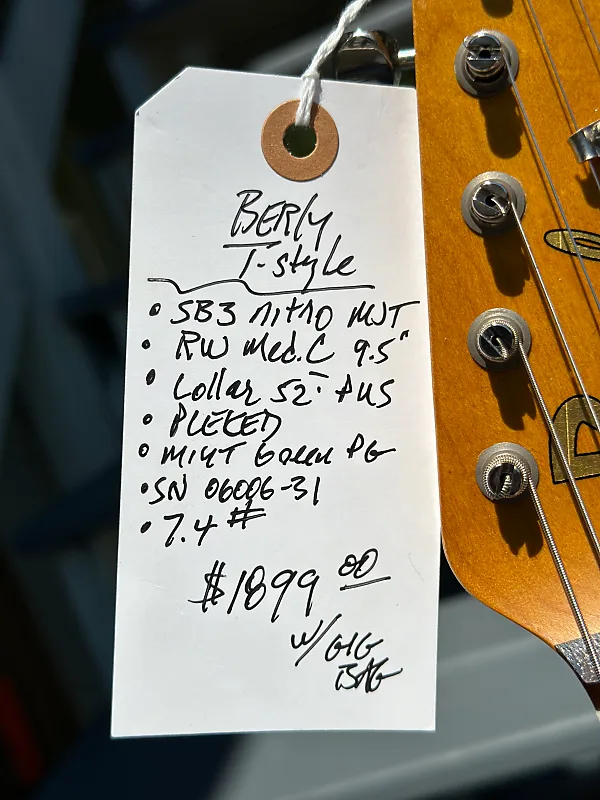 BERly
T-style
• SB3 nitro MJT
• RW Med. C 9.5"
• Collar 52- PUS
• PLEKED
• MINT Green PG
• SN 06006-31
• 7.4 #
$1899 00
w/ GIG
BAG